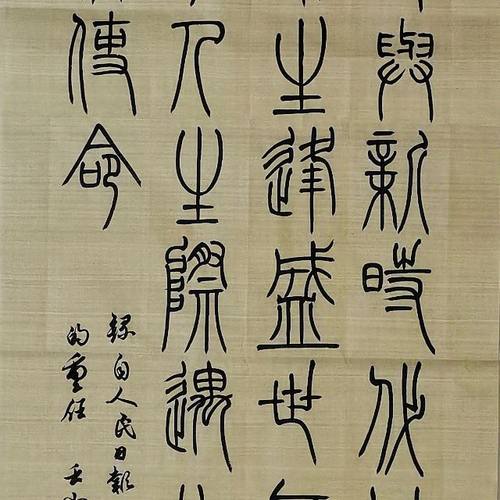 與新時代
生逢盛世
人生際遇
使命
錄自人民日報
的重任